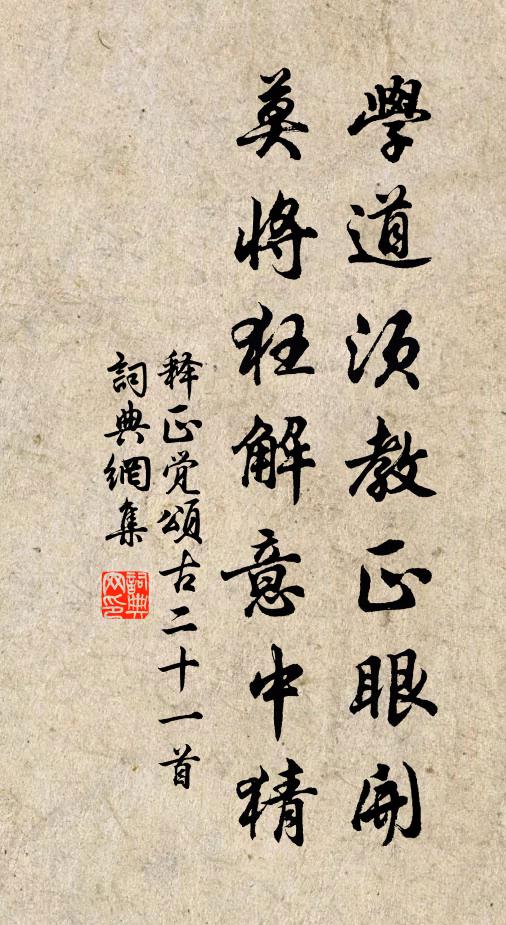 學道須教正眼開
莫將狂解意中猜
释正觉頌古二十一首
詞典網集
詞典
网印